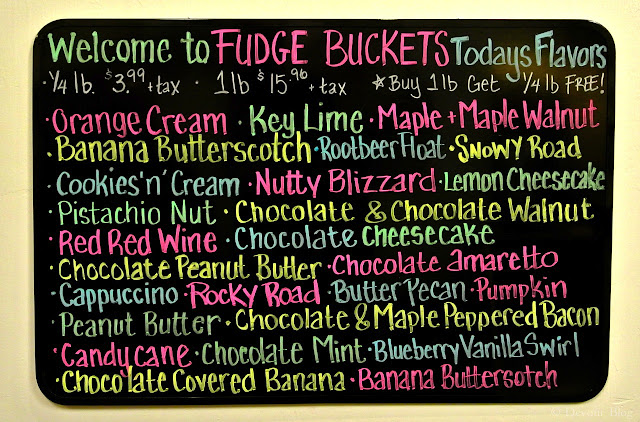 Welcome to FUDGE BUCKETS Todays Flavors
· 1/4 lb. $3.99 + tax · 1 lb $15.96 + tax * Buy 1 lb Get 1/4 lb FREE!
· Orange Cream · Key Lime · Maple + Maple Walnut
· Banana Butterscotch · Rootbeer Float · Snowy Road
· Cookies 'n' Cream · Nutty Blizzard · Lemon Cheesecake
· Pistachio Nut · Chocolate & Chocolate Walnut
· Red Red Wine · Chocolate Cheesecake
· Chocolate Peanut Butter · Chocolate amaretto
· Cappuccino · Rocky Road · Butter Pecan · Pumpkin
· Peanut Butter · Chocolate & Maple Peppered Bacon
· Candy cane · Chocolate Mint · Blueberry Vanilla Swirl
· Chocolate Covered Banana · Banana Buttersotch